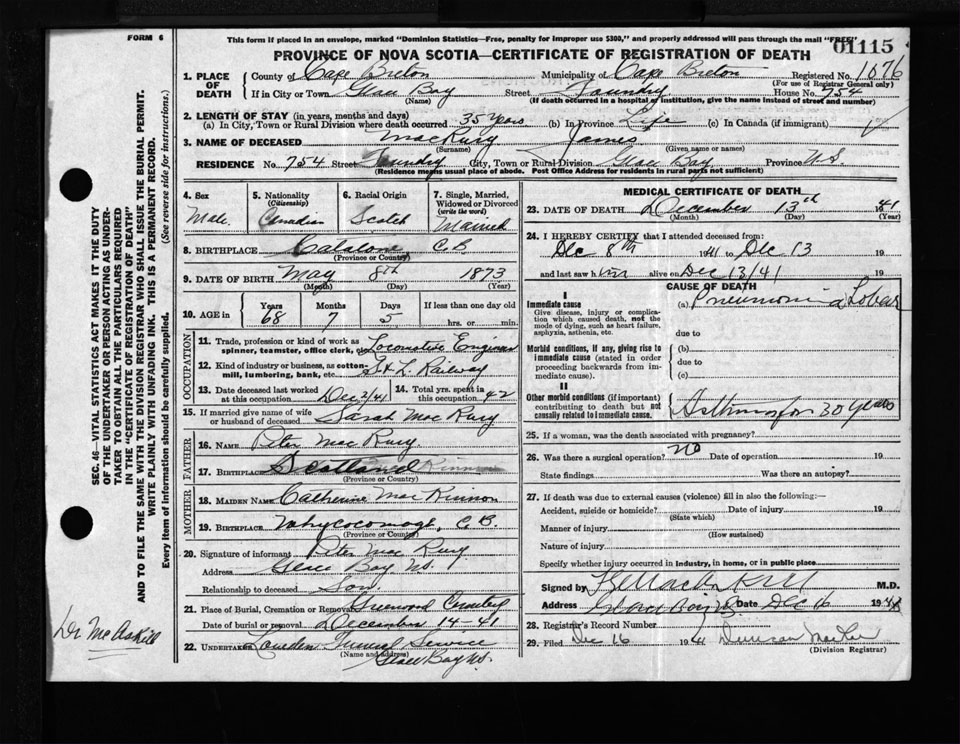 FORM 6
This form if placed in an envelope, marked "Dominion Statistics—Free, penalty for improper use $300," and properly addressed will pass through the mail "FREE"
01115
PROVINCE OF NOVA SCOTIA—CERTIFICATE OF REGISTRATION OF DEATH
1. PLACE OF DEATH County of Cape Breton Municipality of Cape Breton Registered No. 1076
(For use of Registrar General only)
If in City or Town Glace Bay Street Foundry House No. 754
(Name) (If death occurred in a hospital or institution, give the name instead of street and number)
2. LENGTH OF STAY (in years, months and days)
(a) In City, Town or Rural Division where death occurred 35 years (b) In Province Life (c) In Canada (if immigrant)
3. NAME OF DECEASED MacRury James
(Surname) (Given name or names)
RESIDENCE No. 754 Street Foundry City, Town or Rural Division Glace Bay Province N.S.
(Residence means usual place of abode. Post Office Address for residents in rural parts not sufficient)
4. Sex Male
5. Nationality (Citizenship) Canadian
6. Racial Origin Scotch
7. Single, Married, Widowed or Divorced (write the word) Married
8. BIRTHPLACE Catalone C.B.
(Province or Country)
9. DATE OF BIRTH May 8th 1873
(Month) (Day) (Year)
10. AGE in Years 68 Months 7 Days 5 If less than one day old hrs. or min.
OCCUPATION
11. Trade, profession or kind of work as spinner, teamster, office clerk, etc. Locomotive Engineer
12. Kind of industry or business, as cotton-mill, lumbering, bank, etc. S & L Railway
13. Date deceased last worked at this occupation Dec 2/41 14. Total yrs. spent in this occupation 42
15. If married give name of wife or husband of deceased Sarah MacRury
FATHER
16. NAME Peter MacRury
17. BIRTHPLACE Scotland
(Province or Country)
MOTHER
18. MAIDEN NAME Catherine MacKinnon
19. BIRTHPLACE Whycocomagh, C.B.
(Province or Country)
20. Signature of informant Peter MacRury
Address Glace Bay N.S.
Relationship to deceased Son
21. Place of Burial, Cremation or Removal Greenwood Cemetery
Date of burial or removal December 14-41
22. UNDERTAKER Funeral Service
(Name and address) Glace Bay N.S.
MEDICAL CERTIFICATE OF DEATH
23. DATE OF DEATH December 13th 1941
(Month) (Day) (Year)
24. I HEREBY CERTIFY that I attended deceased from:
Dec 8th 1941 to Dec 13 19
and last saw him alive on Dec 13/41 19
CAUSE OF DEATH
I
Immediate cause
Give disease, injury or complication which caused death, not the mode of dying, such as heart failure, asphyxia, asthenia, etc.
(a) Pneumonia Lobar
due to
Morbid conditions, if any, giving rise to immediate cause (stated in order proceeding backwards from immediate cause).
(b)
due to
(c)
II
Other morbid conditions (if important) contributing to death but not causally related to immediate cause.
Asthma for 30 years
25. If a woman, was the death associated with pregnancy?
26. Was there a surgical operation? no Date of operation 19
State findings Was there an autopsy?
27. If death was due to external causes (violence) fill in also the following:—
Accident, suicide or homicide? Date of injury 19
(State which)
Manner of injury
(How sustained)
Nature of injury
Specify whether injury occurred in Industry, in home, or in public place
Signed by M.D.
Address Glace Bay Date Dec 16 194
28. Registrar's Record Number
29. Filed Dec 16 1941 Duncan
(Division Registrar)
SEC. 46—VITAL STATISTICS ACT MAKES IT THE DUTY OF THE UNDERTAKER OR PERSON ACTING AS UNDERTAKER TO OBTAIN ALL THE PARTICULARS REQUIRED IN THE "CERTIFICATE OF REGISTRATION OF DEATH" AND TO FILE THE SAME WITH THE DIVISION REGISTRAR WHO SHALL ISSUE THE BURIAL PERMIT.
WRITE PLAINLY WITH UNFADING INK. THIS IS A PERMANENT RECORD.
Every item of information should be carefully supplied. (See reverse side for instructions.)
Dr McAskill